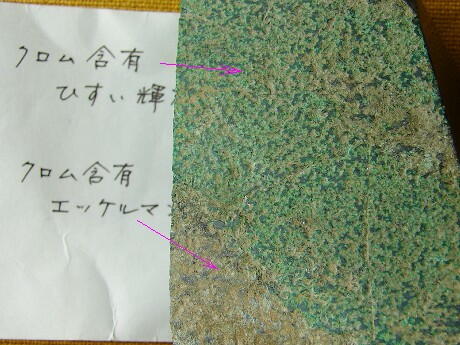 クロム含有
ひすい輝
クロム含有
エッケルマ